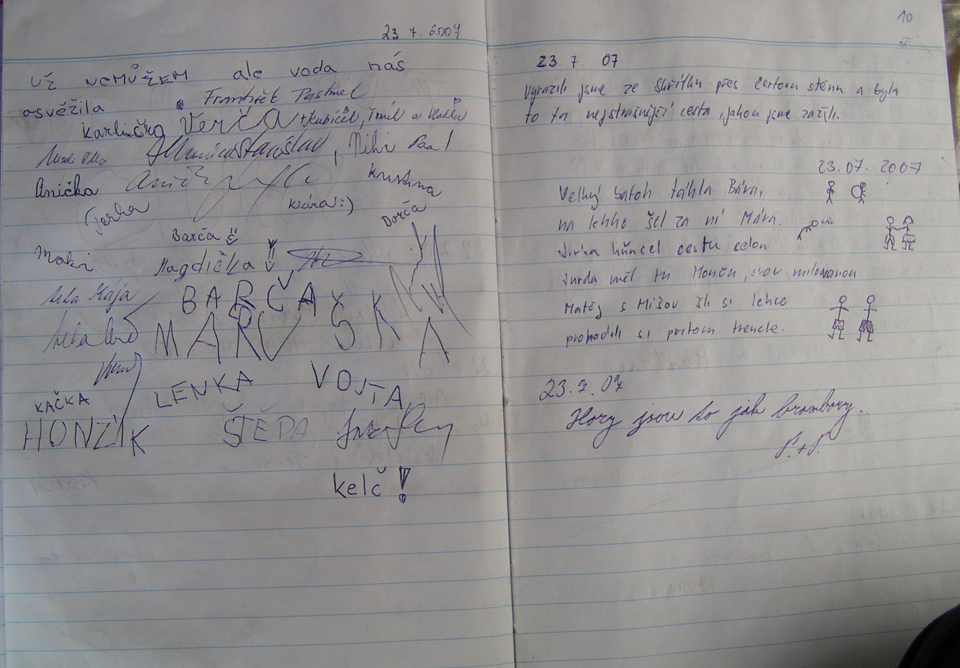 23 7. 2007
UŽ NEMŮŽEM ale voda nás
osvěžila František
Karlička Verča
Niki
Anička Anič Kristina
Terka klára:) Dorča
Barča
Maki Magdička
Kája BARČA
MARUŠKA
KAČKA LENKA VOJTA
HONZÍK ŠTĚPA
kelč!
10
23. 7 07
Vyrazili jsme ze Skřítku přes čertovu stěnu a byla
to ta nejstrašnější cesta, jakou jsme zažili.
23.07.2007
Velký batoh táhla Bára,
na lehko šel za ní Mára.
Jirka kňučel cestu celou
Jurda měl tu Monču, svou milovanou
Matěj s Míšou šli si lehce
prohodili si přitom trencle.
23.7.07
Hory jsou to jak brambory.
P.+P.